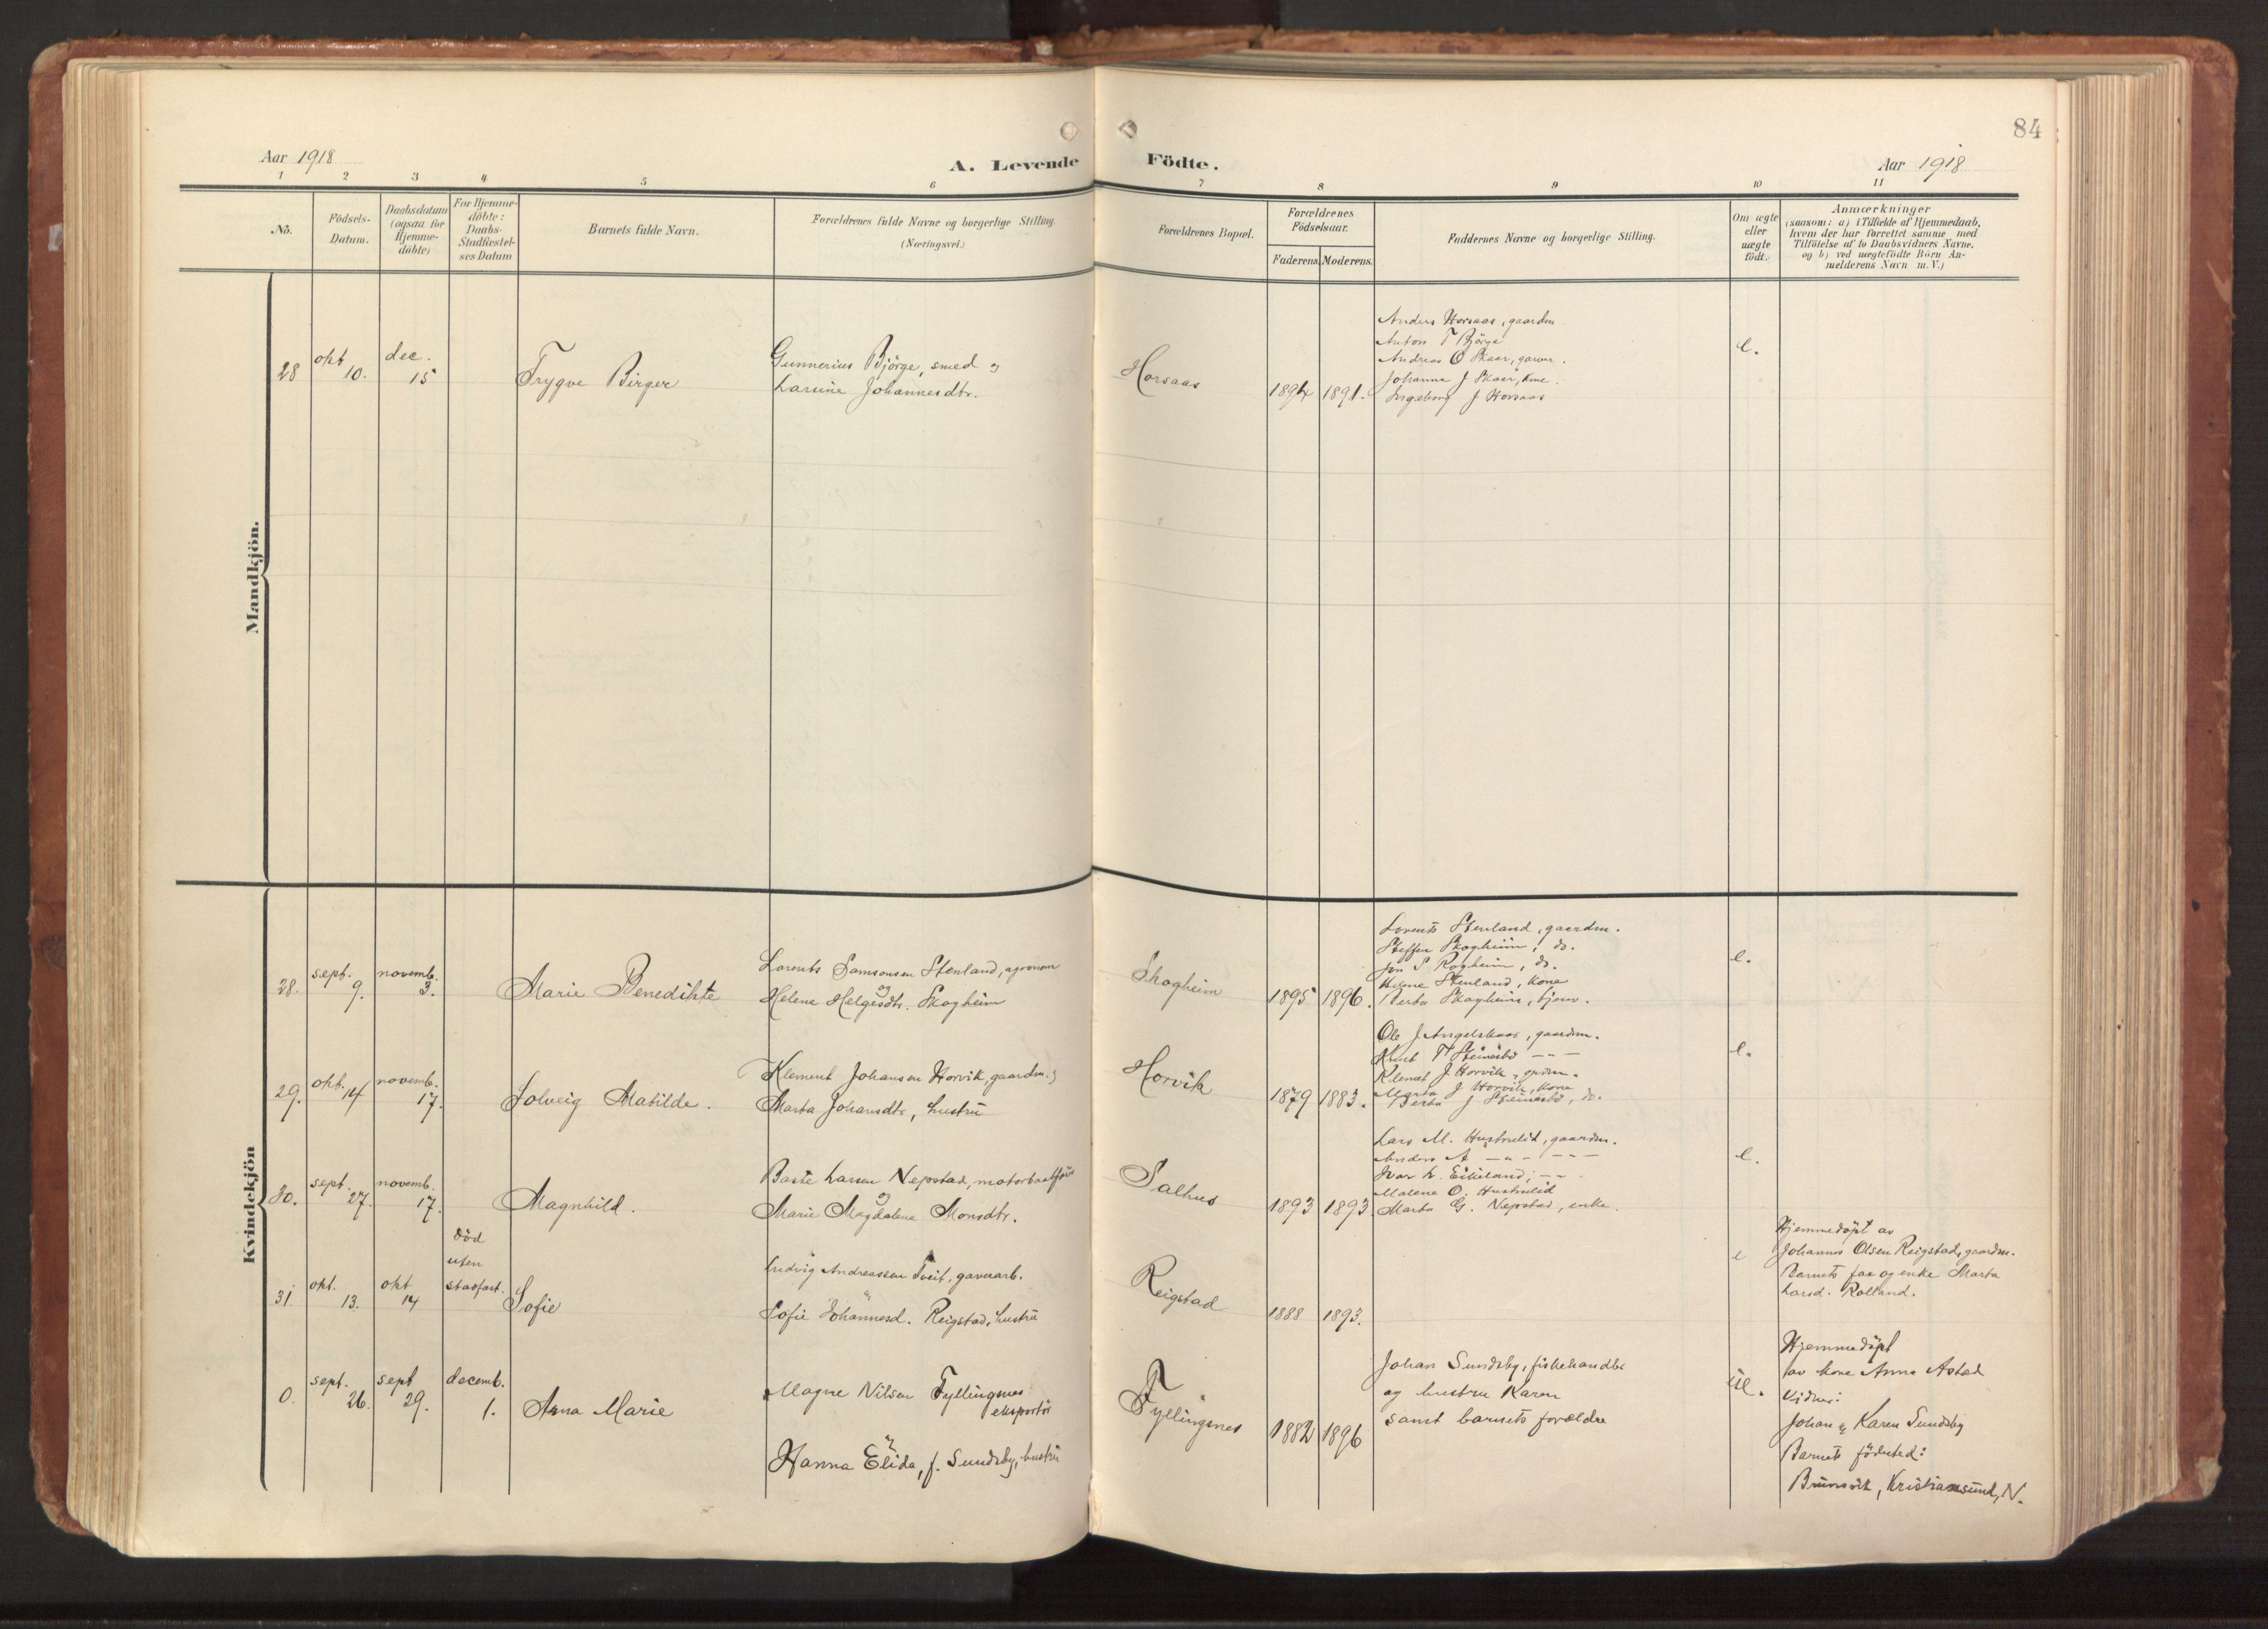 84
Aar 1918
A. Levende Födte.
Aar 1918
1 2 3 4 5 6 7 8 9 10 11
No.
Födsels-
Datum.
Daabsdatum
(ogsaa for
Hjemme-
döbte)
For Hjemme-
döbte:
Daabs-
Stadfæstel-
ses Datum
Barnets fulde Navn.
Forældrenes fulde Navne og borgerlige Stilling.
(Næringsvei.)
Forældrenes Bopæl.
Forældrenes
Födselsaar.
Faderens. Moderens.
Faddernes Navne og borgerlige Stilling.
Om ægte
eller
uægte
födt.
Anmærkninger
(saasom: a) i Tilfælde af Hjemmedaab,
hvem der har forrettet samme med
Tilföielse af to Daabsvidners Navne.
og b) ved uægtefödte Börn An-
melderens Navn m. V.)
Mandkjön.
28
okt
10.
dec.
15
Trygve Birger
Gunnerius Björge, smed og
Larsine Johannesdtr.
Horsaas
1894 1891.
Anders Horsaas, gaardm
Anton T Björge
Andreas O Skaar, garver.
Johanna J Skaar, kone.
Ingeborg J Horsaas
e.
Kvindekjön
28.
sept.
9.
novemb.
3.
Marie Benedikte
Lorents Samsonsen Stenland, agronom
og
Helene Helgesdtr. Skogheim
Skogheim
1895 1896.
Lorents Stenland, gaardm.
Steffen Skogheim, do.
Jon S Rogheim, do.
Helene Stenland, kone
Berta Skogheim, tjen.
e.
29.
okt.
14
novemb.
17.
Solveig Matilde.
Klement Johansen Horvik, gaardm. og
Marta Johansdtr, hustru
Horvik
1879 1883.
Ole J Angelskaar, gaardm.
Knut T Steinsbö -"-
Klemet J Horvik, grdm.
Marta J Horvik, kone
Berta J Steinsbö, do.
e.
30.
sept.
27.
novemb.
17.
Magnhild.
Basse Larsen Nepstad, motorbaatför
og
Marie Magdalene Monsdtr.
Salhus
1893 1893
Lars M. Hustrulid, gaardm.
Anders A -"- -"-
Ivar K. Eikeland, -"-
Malene O. Hustrulid
Marta G. Nepstad, enke.
e.
31
okt.
13.
okt
14
död
uten
stadfæst.
Sofie
Ludvig Andreassen Tveit, gaverarb.
og
Sofie Johannesd. Reigstad, hustru
Reigstad
1888 1893.
e
Hjemmedöpt av
Johannes Olsen Reigstad, gaardm.
Barnets far og enke Marta
Larsd. Rolland.
0.
sept.
26.
sept
29.
decemb.
1.
Anna Marie
Magne Nilsen Fyllingsnes
eksportör
og
Hanna Elida, f. Sundsby, hustru
Fyllingsnes
1882 1896
Johan Sundsby, fiskehandler
og hustru Karen
samt barnets forældre
Hjemmedöpt
av kone Anna Astad
Vidner:
Johan og Karen Sundsby
Barnets födested:
Brunsvik, Kristiansund, N.